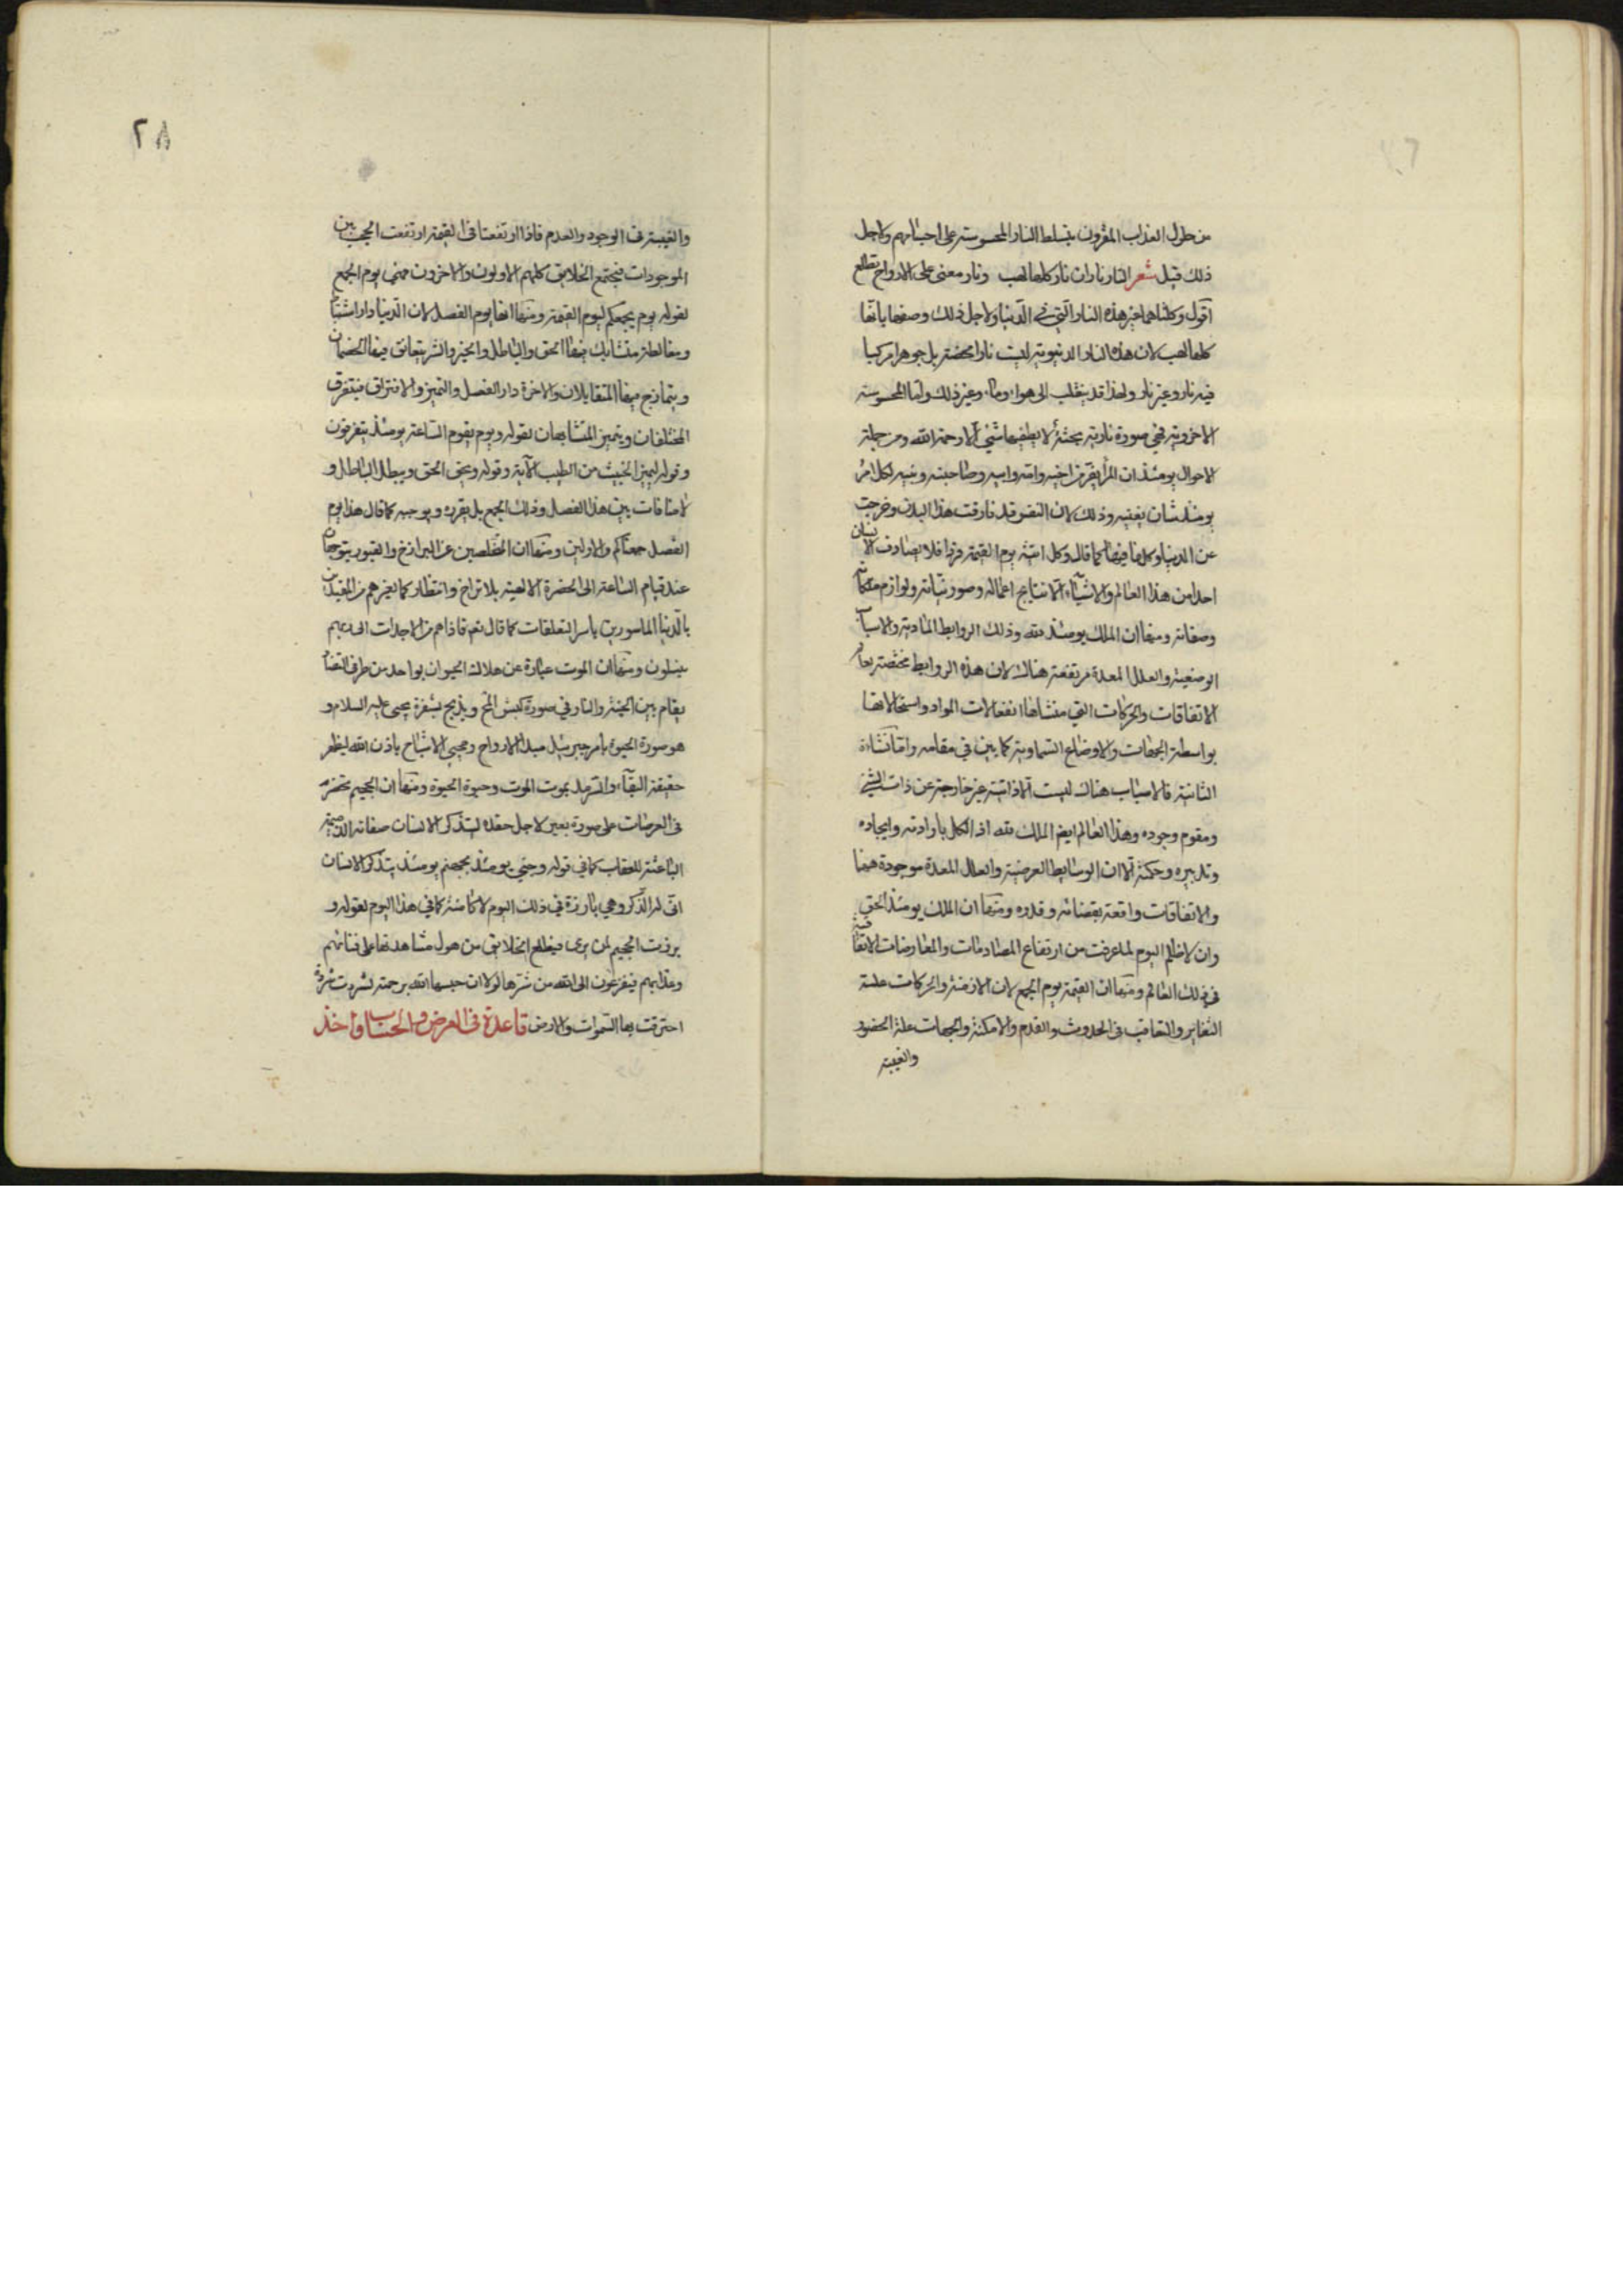 من حلول العذاب المقرون بتسلط النار المحسوسة على اجسامهم ولاجل
ذلك قيل شعر النار ناران نار كلها لهب ونار معنى على الارواح تطلع
اقول وكلتاهما غير هذه النار التي في الدنيا ولاجل ذلك وصفها بانها
كلها لهب لان هذه النار الدنيوية ليست نارا محضة بل جوهرا مركبا
فيه نار وغير نار ولهذا قد ينقلب الى هواء وماء وغير ذلك واما المحسوسة
الاخروية فهي صورة نارية بحتة لا يطفيها شيء الا رحمة الله ومن جملة
الاحوال يومئذ ان المرء يفر من اخيه وامه وابيه وصاحبته وبنيه لكل امرء
يومئذ شان يغنيه وذلك لان النفس قد فارقت هذا البدن وخرجت
عن الدنيا وكل ما فيها كما قال وكل اتيه يوم القيمة فردا فلا يصادف الانسان
احدا من هذا العالم والاشياء الا نتايج اعماله وصور نياته ولوازم ملكاته
وصفاته ومنها ان الملك يومئذ لله وذلك الروابط المادية والاسباب
الوضعية والعلل المعدة مرتفعة هناك لان هذه الروابط مختصة بعالم
الاتفاقات والحركات التي منشاها انفعالات المواد واستحالاتها
بواسطة الجهات والاوضاع السماوية كما بين في مقامه واما نشاءة
الثانية فالاسباب هناك ليست الا ذاتية غير خارجة عن ذات الشيء
ومقوم وجوده وهذا العالم ايضا الملك لله اذ الكل بارادته وايجاده
وتدبيره وحكمته الا ان الوسايط العرضية والعلل المعدة موجودة ههنا
والاتفاقات واقعة بقضائه وقدره ومنها ان الملك يومئذ الحق
وان لا ظلم اليوم لما عرفت من ارتفاع المصادمات والمعارضات الاتفاقية
في ذلك العالم ومنها ان القيمة يوم الجمع لان الازمنة والحركات علة
التغاير والتعاقب في الحدوث والقدم والامكنة والجهات علة الحضور
والغيبة
٢٨
والغيبة في الوجود والعدم فاذا ارتفعتا في القيمة ارتفعت الحجب بين
الموجودات فيجتمع الخلايق كلهم الاولون والاخرون فهي يوم الجمع
لقوله يوم يجمعكم ليوم القيمة ومنها انها يوم الفصل لان الدنيا دار اشتباه
ومغالطة متشابك فيها الحق والباطل والخير والشر يتعانق فيها الخصمان
ويتمازج فيها المتقابلان والاخرة دار الفصل والتميز والافتراق فيتفرق
المختلفان ويتميز المتشابهان لقوله ويوم يقوم الساعة يومئذ يتفرقون
وقوله ليميز الخبيث من الطيب الآية وقوله ويحق الحق ويبطل الباطل و
لا منافات بين هذا الفصل وذلك الجمع بل يقرره ويوجبه كما قال هذا يوم
الفصل جمعناكم والاولين ومنها ان المخلصين عن البرازخ والقبور يتوجهون
عند قيام الساعة الى الحضرة الالهية بلا تراخ وانتظار كما لغيرهم من المقيدين
بالدنيا الماسورين باسر التعلقات كما قال تعم فاذا هم من الاجداث الى ربهم
ينسلون ومنها ان الموت عبارة عن هلاك الحيوان بواحد من طرفي التضاد
يقام بين الجنة والنار في صورة كبش املح ويذبح بشفرة يحيى عليه السلام و
هو صورة الحيوة بامر جبرئيل مبدا الارواح ومحيي الاشباح باذن الله ليظهر
حقيقة البقاء والسرمد بموت الموت وحيوة الحيوة ومنها ان الجحيم تحضر
في العرصات على صورة بعير لاجل حقده ليتذكر الانسان صفاته الذميمة
الباعثة للعقاب كما في قوله وجيء يومئذ بجهنم يومئذ يتذكر الانسان
انى له الذكر وهي بارزة في ذلك اليوم لا كامنة كما في هذا اليوم لقوله و
برزت الجحيم لمن يرى فيطلع الخلايق من هول مشاهدتها على فنائهم
وعذابهم فيفزعون الى الله من شرها لولا ان حبسها الله برحمته لشردت شردة
احترقت بها السموات والارض قاعدة في العرض والحساب واخذ